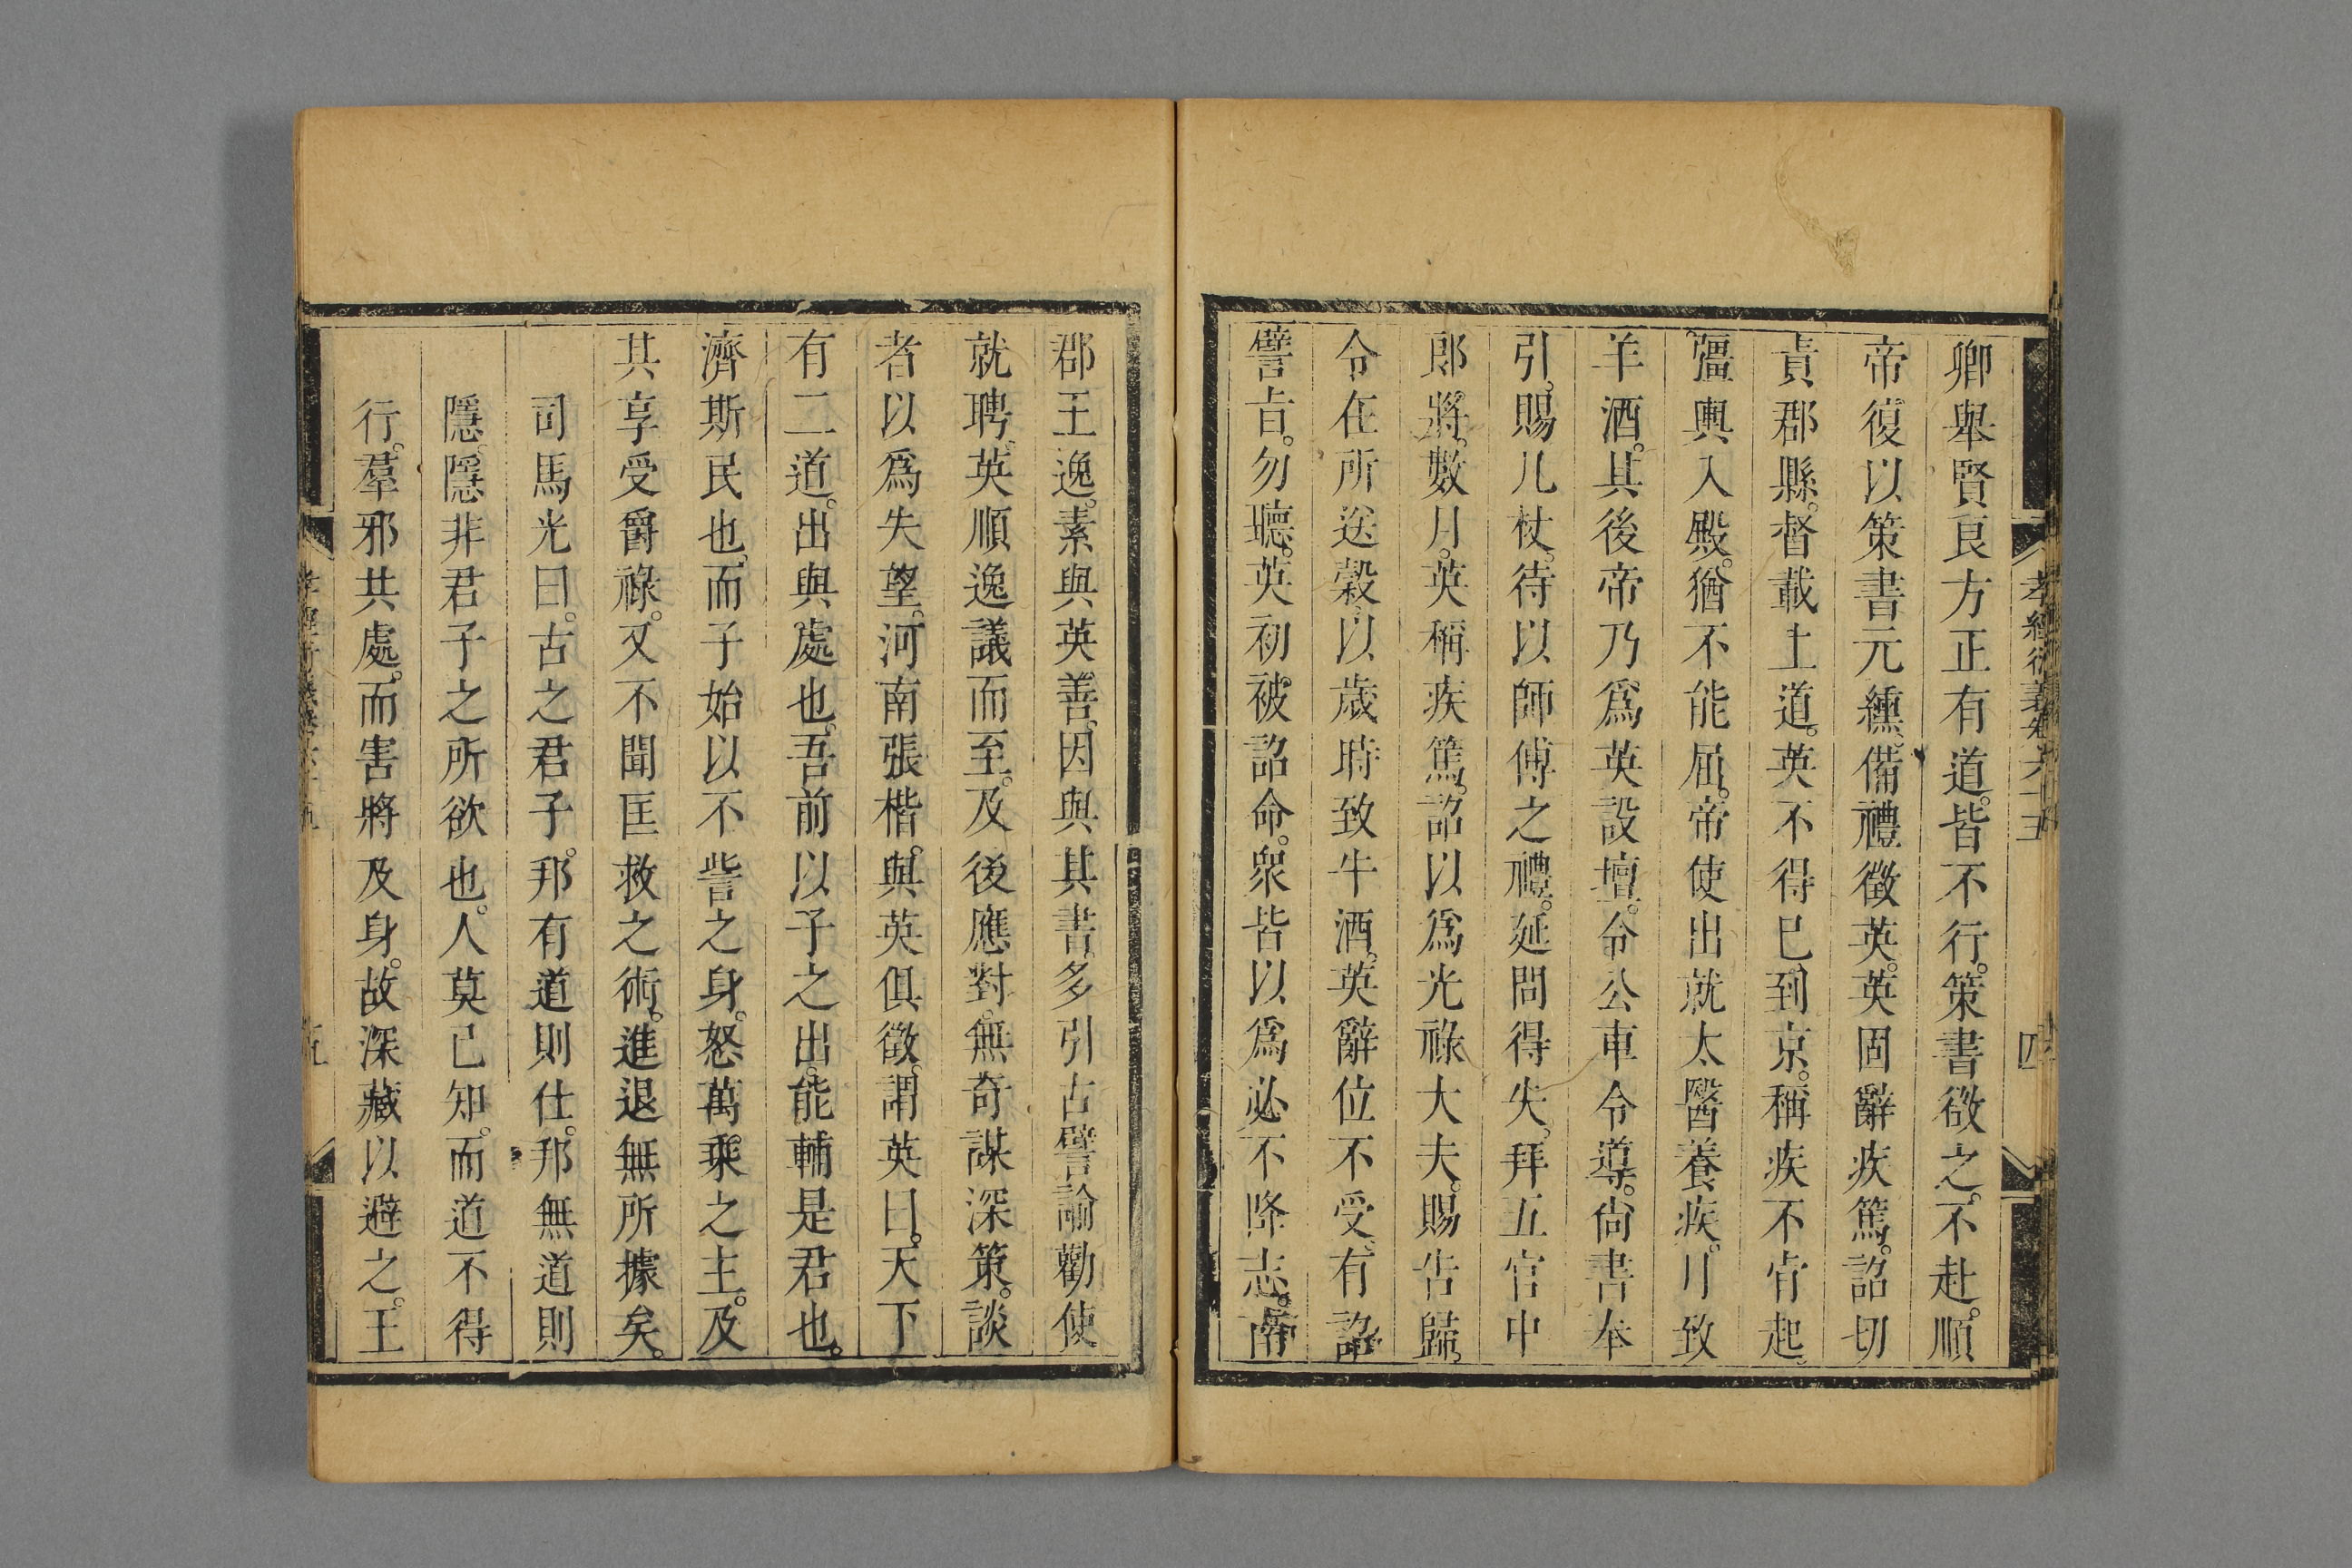 孝經衍義卷六十五
四
卿舉賢良方正有道。皆不行。策書徵之。不赴。順
帝復以策書元纁。備禮徵英。英固辭疾篤。詔切
責郡縣。督載上道。英不得已到京。稱疾不肯起。
彊輿入殿。猶不能屈。帝使出就太醫養疾。月致
羊酒。其後帝乃爲英設壇。令公車令導。尙書奉
引。賜几杖。待以師傅之禮。延問得失。拜五官中
郎將。數月。英稱疾篤。詔以爲光祿大夫。賜告歸。
令在所送穀。以歲時致牛酒。英辭位不受。有詔
譬旨。勿聽。英初被詔命。衆皆以爲必不降志。南
郡王逸。素與英善。因與其書。多引古譬諭勸使
就聘。英順逸議而至。及後應對。無奇謀深策。談
者以爲失望。河南張楷。與英俱徵。謂英曰。天下
有二道。出與處也。吾前以子之出。能輔是君也。
濟斯民也。而子始以不訾之身。怒萬乘之主。及
其享受爵祿。又不聞匡救之術。進退無所據矣。
司馬光曰。古之君子。邦有道則仕。邦無道則
隱。隱非君子之所欲也。人莫已知。而道不得
行。羣邪共處。而害將及身。故深藏以避之。王
五